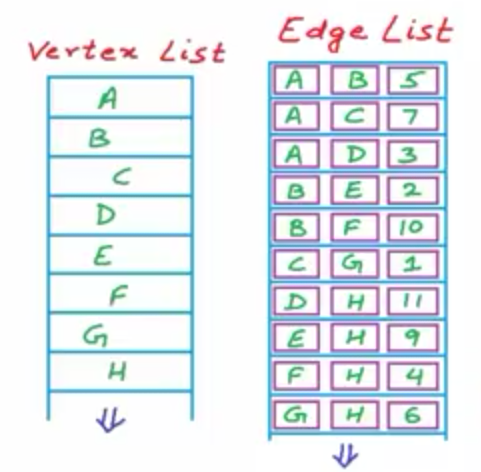 Vertex List
A
B
C
D
E
F
G
H
Edge List
A B 5
A C 7
A D 3
B E 2
B F 10
C G 1
D H 11
E H 9
F H 4
G H 6